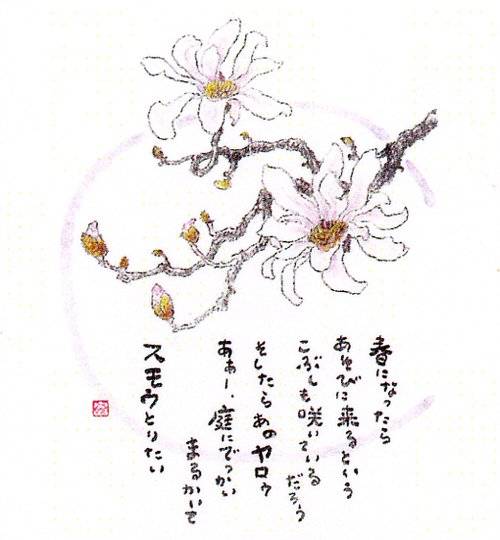 春になったら
あそびに来るという
こぶしも咲いている
だろう
そしたらあのヤロウ
あぁー、庭にでっかい
まるかいて
スモウとりたい